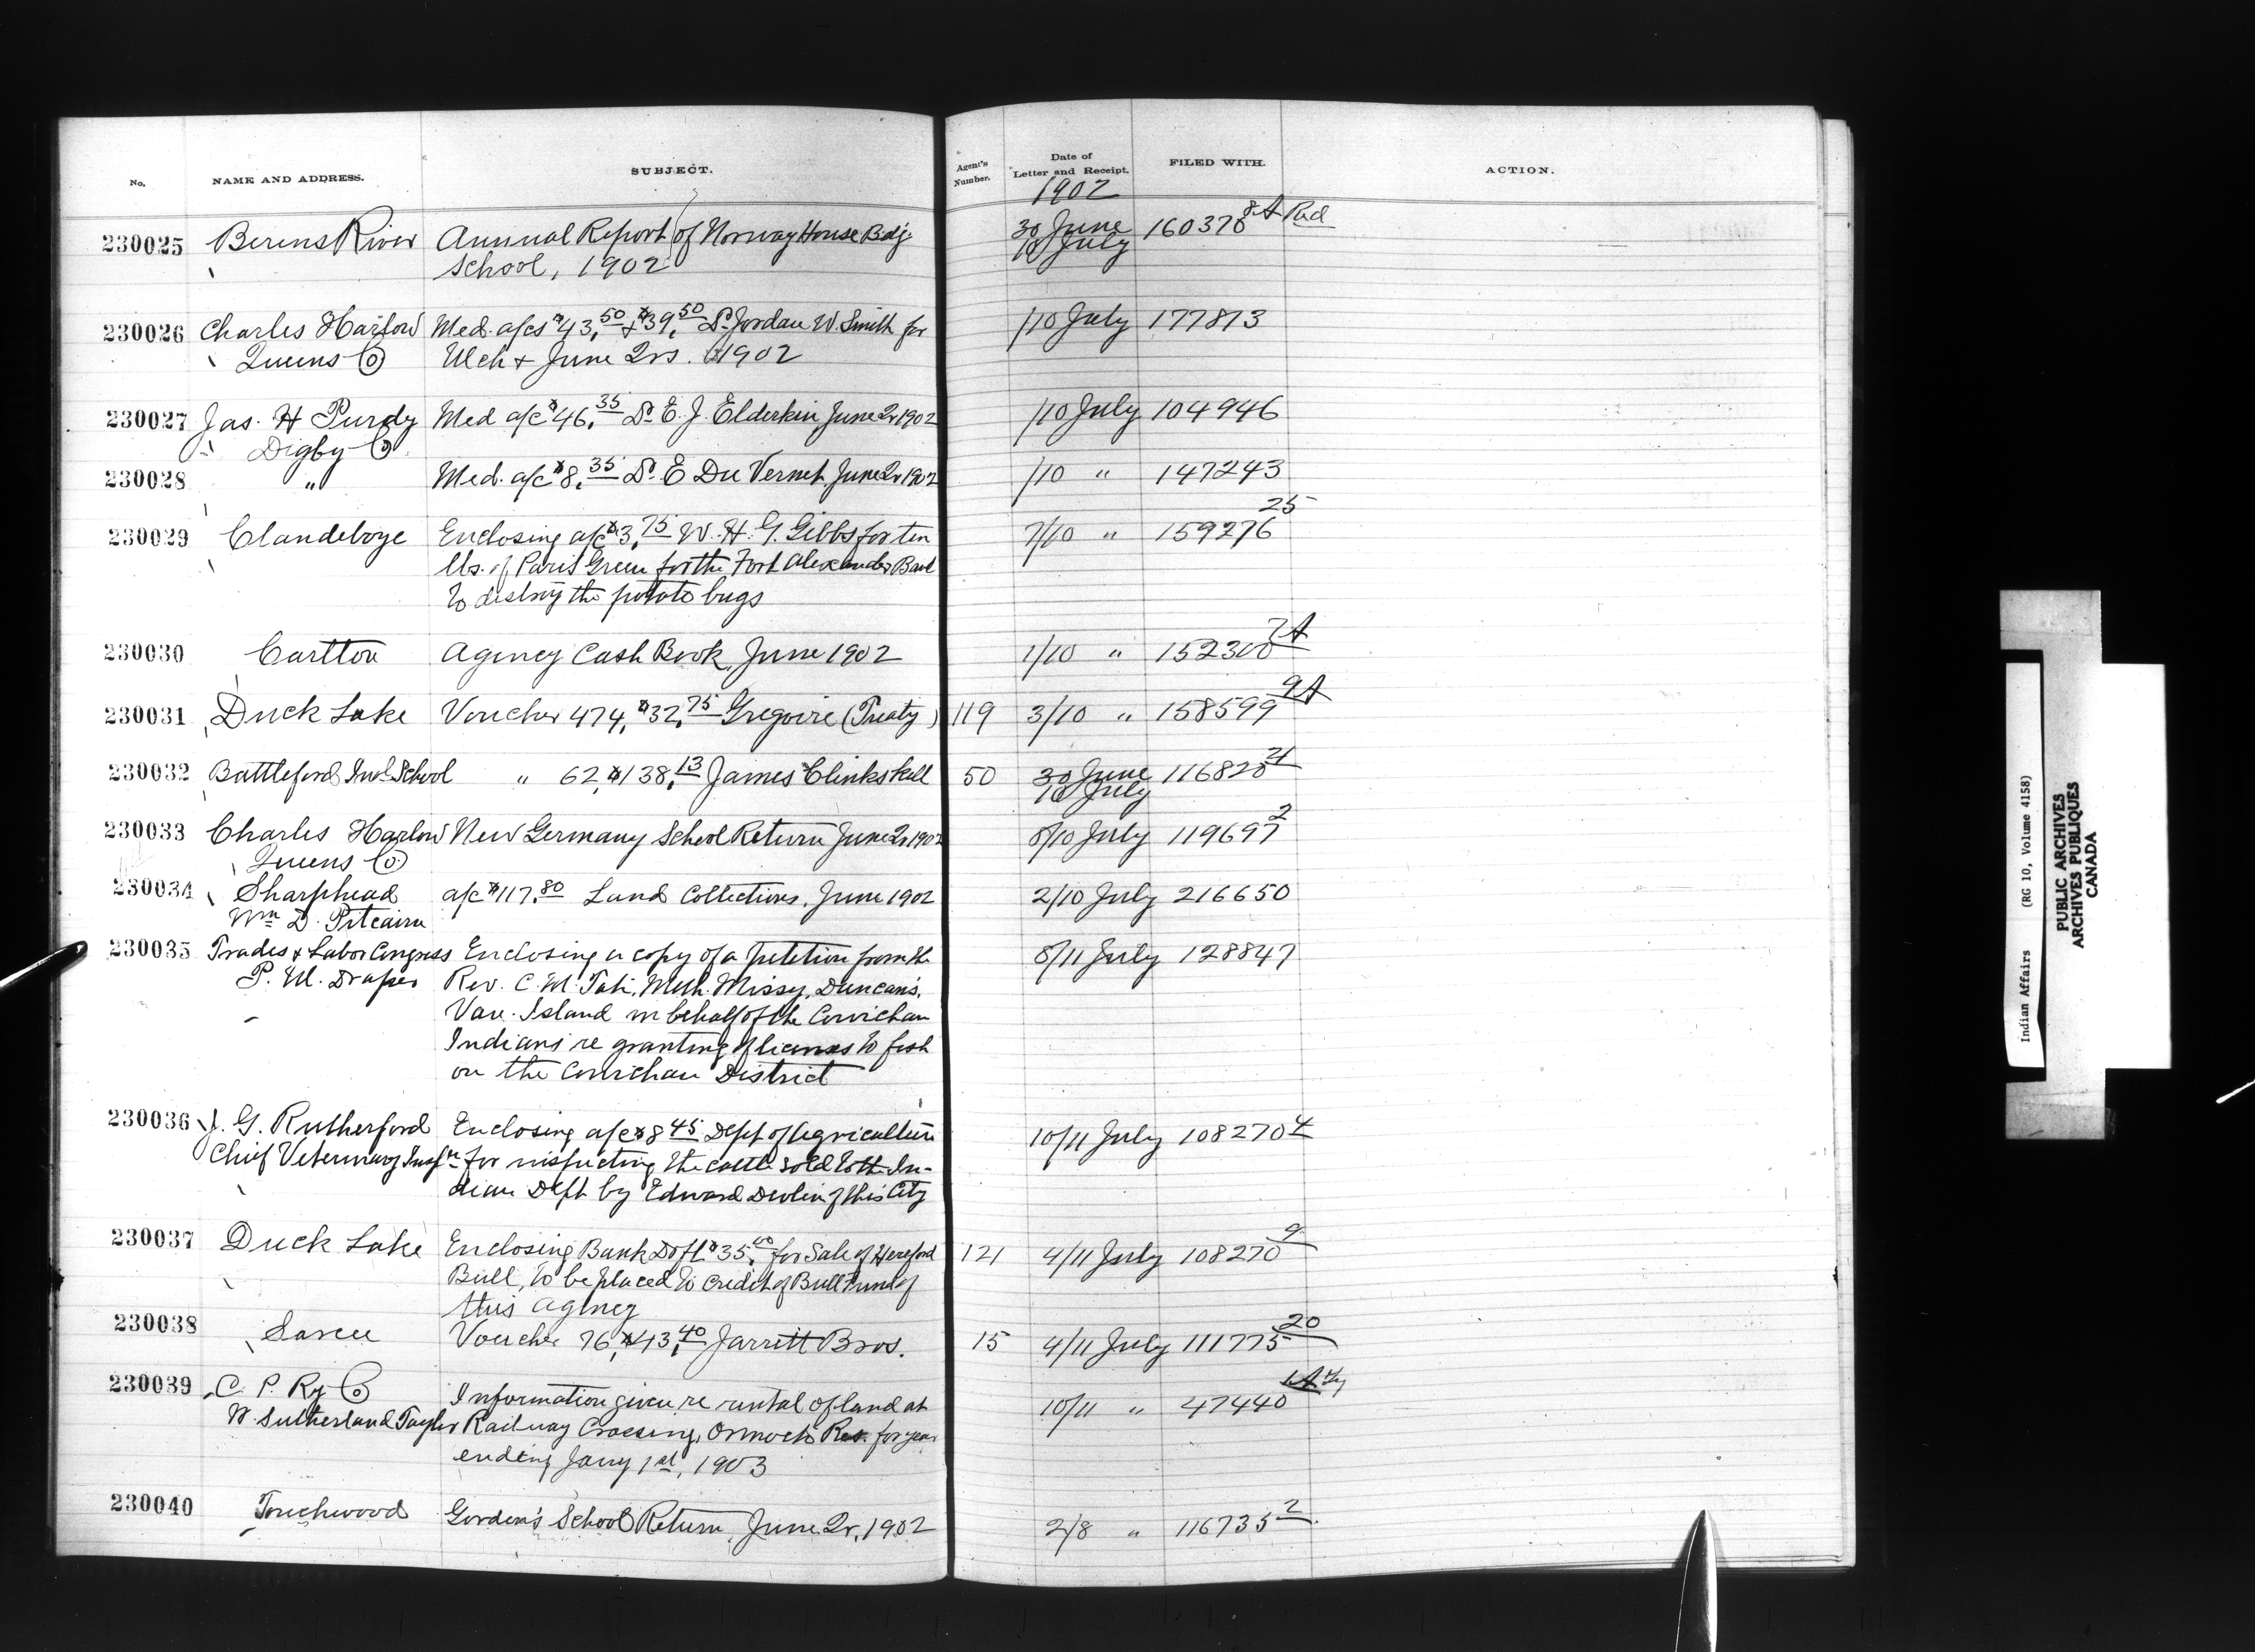 No. NAME AND ADDRESS. SUBJECT. Agent's Number. Date of Letter and Receipt. FILED WITH. ACTION.
1902
230025 Berens River Annual Report of Norway House Bdg 30 June 160378 8A Red
School, 1902 10 July
230026 Charles Harlow Med. a/cs $43.50 & $39.50 Dr. Jordan W. Smith for /10 July 177813
Queens Co Mch & June Qrs. 1902
230027 Jas. H Purdy Med a/c $46.35 Dr E. J. Elderkin June Qr 1902 /10 July 104946
Digby Co.
230028 " Med. a/c $8.35 Dr E Du Vernet June Qr 1902 /10 " 147243
230029 Clandeboye Enclosing a/c $3.75 W. H. G. Gibbs for ten 7/10 " 159276 25
lbs. of Paris Green for the Fort Alexander Band
to destroy the potato bugs
230030 Carlton Agency Cash Book, June 1902 1/10 " 152300 7A
230031 Duck Lake Voucher 474, $32.75 Gregoire (Treaty) 119 3/10 " 158599 9A
230032 Battleford Indl School " 62, $138.13 James Clinkskill 50 30 June 116828 21
10 July
230033 Charles Harlow New Germany School Return June Qr 1902 8/10 July 119697 2
Queens Co
230034 Sharphead a/c $117.80 Land Collections, June 1902 2/10 July 216650
Wm D. Pitcairn
230035 Trades & Labor Congress Enclosing a copy of a petition from the 8/11 July 128847
P. M. Draper Rev. C. M. Tate, Meth. Missy, Duncan's,
Van. Island in behalf of the Cowichan
Indians re granting of licenses to fish
on the Cowichan District
230036 J. G. Rutherford Enclosing a/c $8.45 Dept of Agriculture 10/11 July 108270 4
Chief Veterinary Inspr for inspecting the cattle sold to the In-
dian Dept by Edward Devlin of this City
230037 Duck Lake Enclosing Bank Dft $35.00 for Sale of Hereford 121 4/11 July 108270 9
Bull, to be placed to credit of Bull Fund of
this Agency
230038 Sarcee Voucher 76, $43.40 Jarrett Bros. 15 4/11 July 111775 20
230039 C. P. Ry Co Information given re rental of land at 10/11 " 47440
W. Sutherland Taylor Railway Crossing, Oromocto Res. for year
ending Jany 1st, 1903
230040 Touchwood Gordon's School Return, June Qr, 1902 2/8 " 116735 2
Indian Affairs (RG 10, Volume 4158)
PUBLIC ARCHIVES
ARCHIVES PUBLIQUES
CANADA